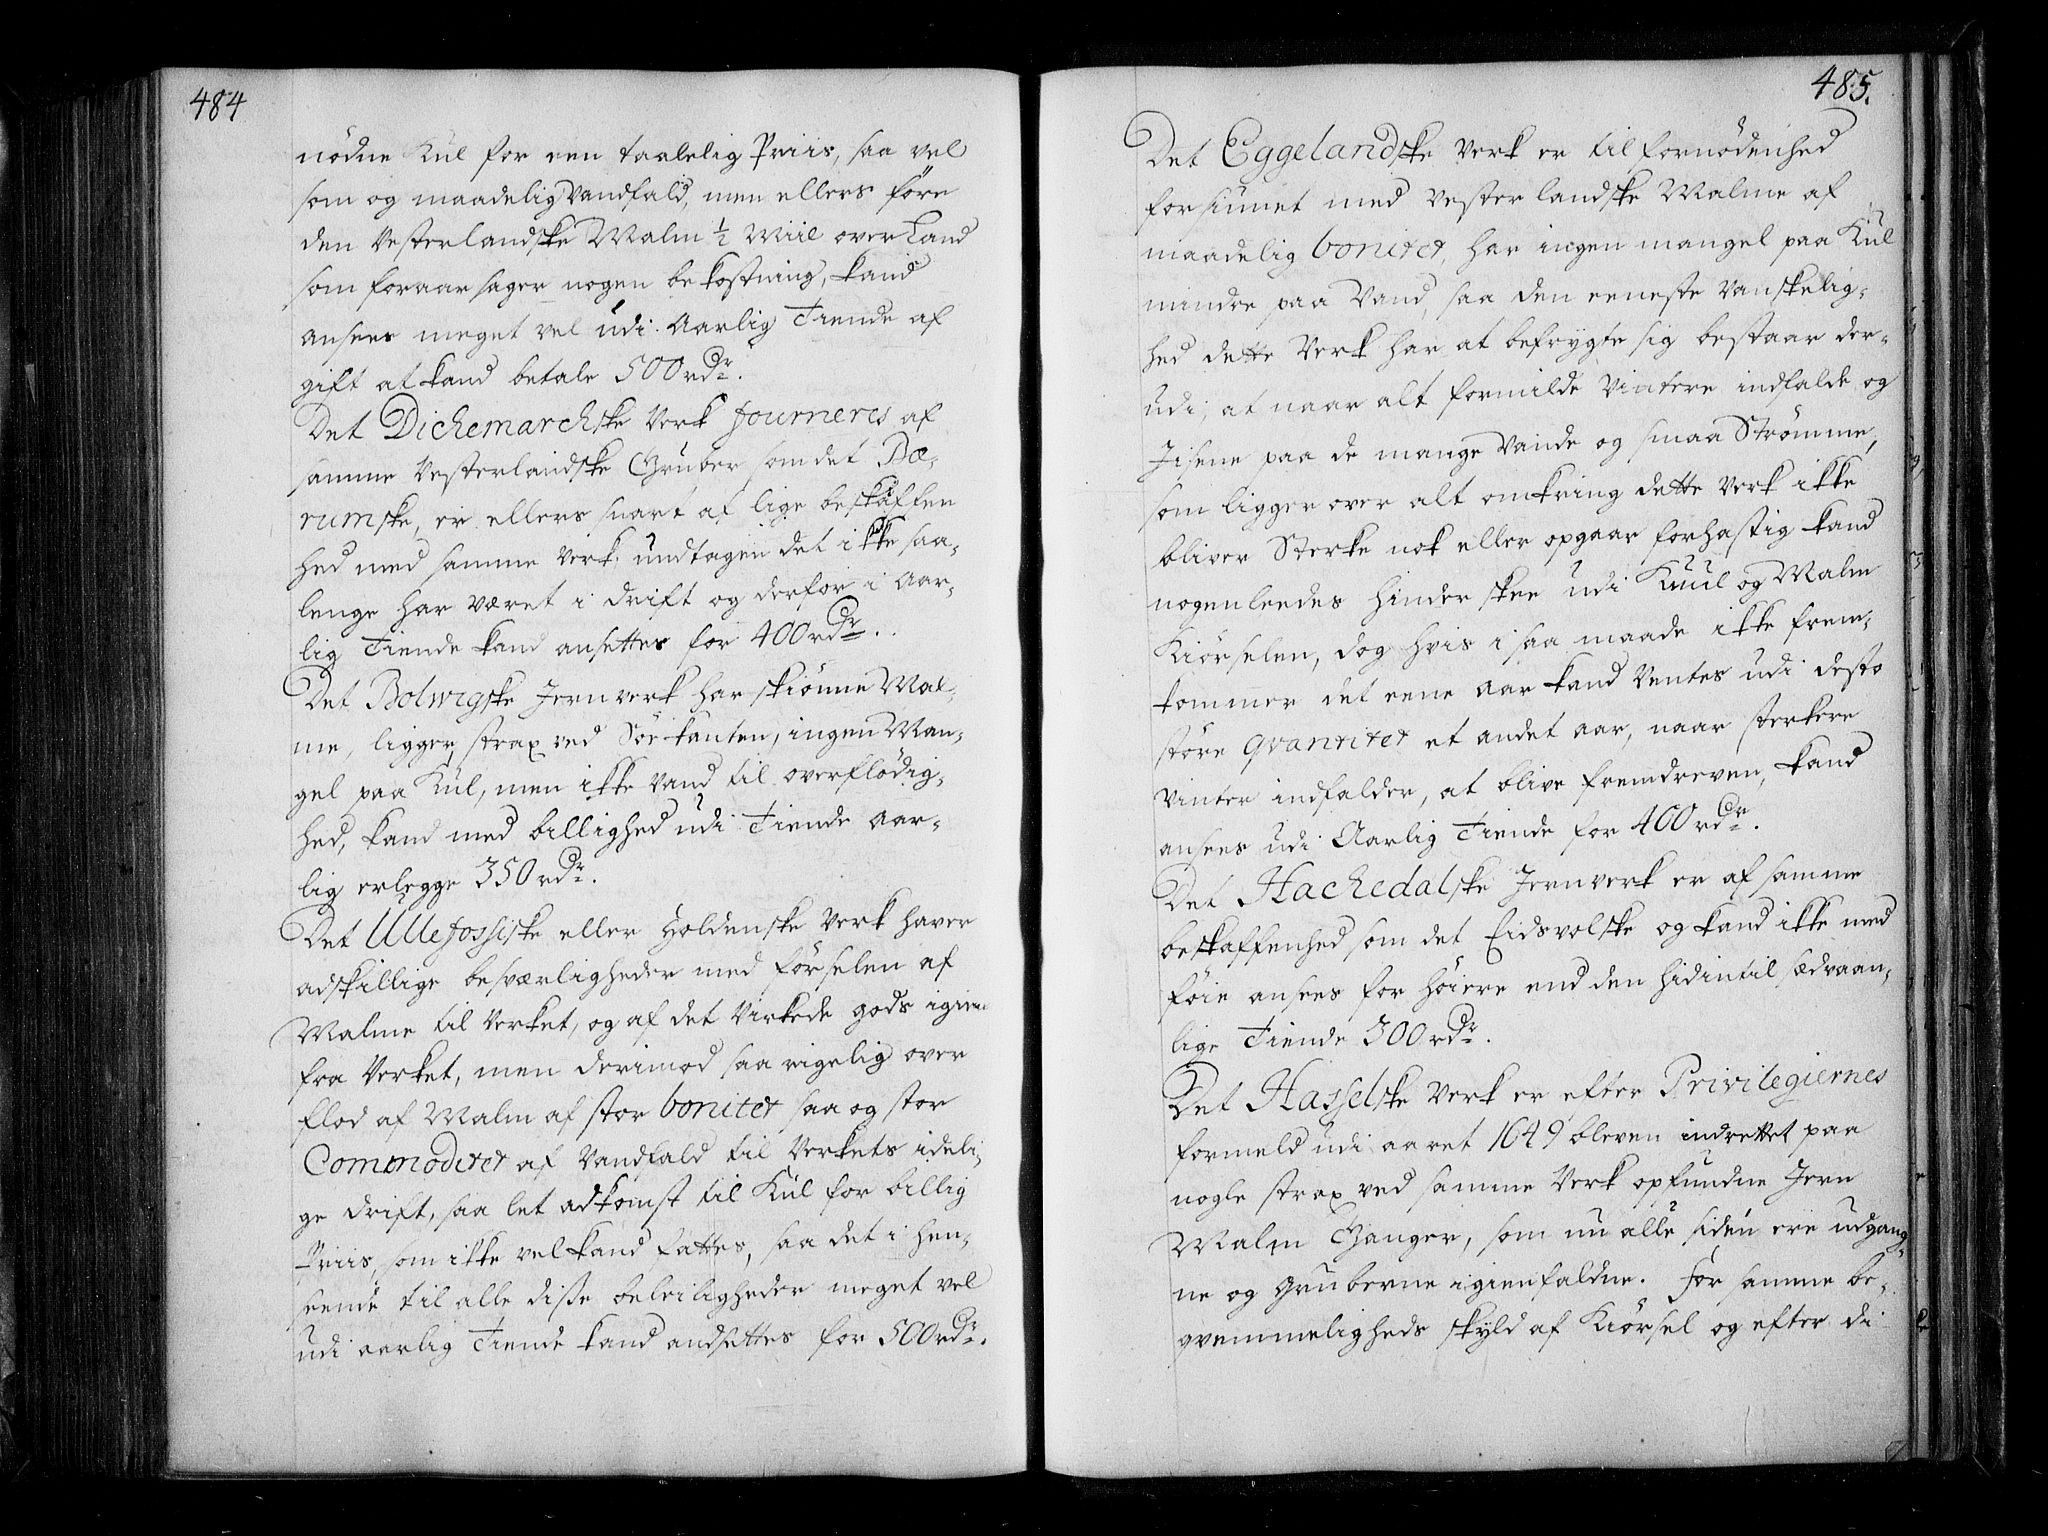 484
nödne Kul for een taalelig Priis, saa vel
som og maadelig Vandfald, men ellers före
den Vesterlandske Malm ½ Miil over Land
som foraarsager nogen bekostning, kand
ansees meget vel udi Aarlig Tiende af
gift at kand betale 500 rdr.
Det Dichemarchske Verk fourneres af
samme Vesterlandske Gruber som det Bæ-
rumske, er ellers snart af lige beskaffen
hed med samme Verk, undtagen det ikke saa-
lenge har været i drift og derfor i Aar-
lig Tiende kand ansettes for 400 rdr.
Det Bolwigske Jernverk har skiönne Mal-
me, ligger strax ved Söe kanten, ingen Man-
gel paa Kul, men ikke Vand til overflödig-
hed, kand med billighed udi Tiende Aar-
lig erlegge 350 rdr.
Det Ullefossiske eller Holdenske Verk haver
adskillige besværligheder med förselen af
Malme til Verket, og af det Virkede gods igien
fra Verket, men derimod saa rigelig over
flod af Malm af stor bonitet saa og stor
Commoditet af Vandfald til Verkets ideli-
ge drift, saa let adkomst til Kul for billig
Priis, som ikke vel kand fattes, saa det i hen-
seende til alle disse beleiligheder meget vel
udi aarlig Tiende kand andsettes for 500 rdr.
485.
Det Eggelandske Verk er til fornödenhed
forsiunet med Vesterlandske Malme af
maadelig bonitet, har ingen mangel paa Kul
mindre paa Vand, saa den eeneste Vanskelig-
hed dette Verk har at befrygte sig bestaar der-
udi, at naar alt formilde Vintere indfalde og
Jisene paa de mange Vande og smaa Strömme,
som ligger over alt omkring dette Verk ikke
bliver Sterke nok eller opgaar forhastig kand
nogenleedes hinder skee udi Kuul og Malm
Kiörselen, dog hvis i saa maade ikke frem-
kommer det eene Aar kand Ventes udi desto
störe qvantitet et andet aar, naar sterkere
Vinter indfalder, at blive fremdreven, kand
ansees udi Aarlig Tiende for 400 rdr.
Det Hachedalske Jernverk er af samme
beskaffenhed som det Eidsvolske og kand ikke med
föie ansees for höiere end den hidintil sædvaan-
lige Tiende 300 rdr.
Det Hasselske Verk er efter Privilegiernes
formeld udi aaret 1649 bleven indrettet paa
nogle strax ved samme Verk opfundne Jern
Malm Ganger, som nu alle siden ere udgang-
ne og gruberne igienfaldne. For samme be-
qvemmeligheds skyld af Kiörsel og efter di